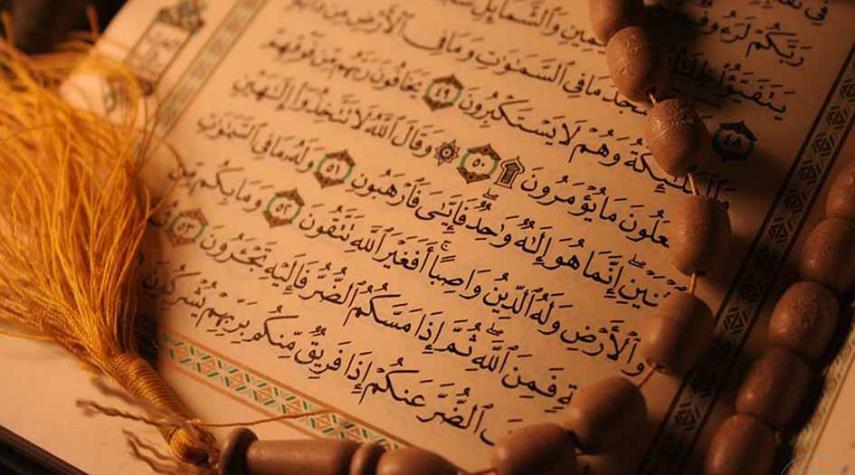 فِي
رَبَّكُمْ لَرَءُوفٌ وَٱلشَّمَآئِلِ
يَتَفَيَّؤُا۟ ظِلَٰلُهُۥ
٤٨ مَا فِي ٱلسَّمَٰوَٰتِ وَمَا فِي ٱلْأَرْضِ مِن
وَٱلْمَلَٰٓئِكَةُ وَهُمْ لَا يَسْتَكْبِرُونَ ٤٩ يَخَافُونَ رَبَّهُم مِّن فَوْقِهِمْ
عَلُونَ مَا يُؤْمَرُونَ ۩ ٥٠ ۞ وَقَالَ ٱللَّهُ لَا تَتَّخِذُوٓا۟ إِلَٰهَيْنِ
ثْنَيْنِ إِنَّمَا هُوَ إِلَٰهٌ وَٰحِدٌ فَإِيَّٰيَ فَٱرْهَبُونِ ٥١ وَلَهُۥ مَا فِي ٱلسَّمَٰوَٰتِ
وَٱلْأَرْضِ وَلَهُ ٱلدِّينُ وَاصِبًا أَفَغَيْرَ ٱللَّهِ تَتَّقُونَ ٥٢ وَمَا بِكُم مِّن
ةٍ فَمِنَ ٱللَّهِ ثُمَّ إِذَا مَسَّكُمُ ٱلضُّرُّ فَإِلَيْهِ تَجْـَٔرُونَ ٥٣
ٱلضُّرَّ عَنكُمْ إِذَا فَرِيقٌ مِّنكُم بِرَبِّهِمْ يُشْرِكُونَ